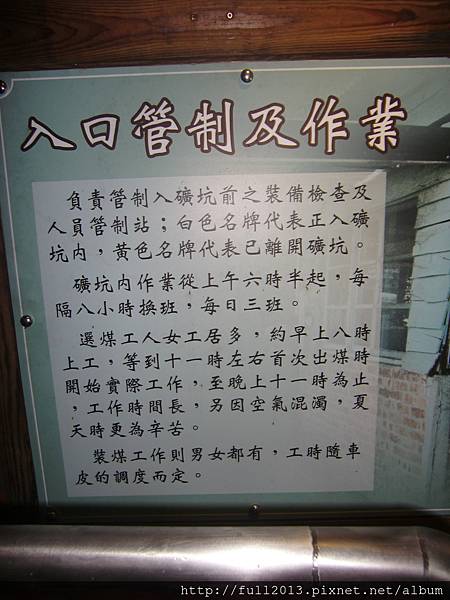 入口管制及作業
負責管制入礦坑前之裝備檢查及
人員管制站；白色名牌代表正入礦
坑內，黃色名牌代表已離開礦坑。
礦坑內作業從上午六時半起，每
隔八小時換班，每日三班。
選煤工人女工居多，約早上八時
上工，等到十一時左右首次出煤時
開始實際工作，至晚上十一時為止
，工作時間長，另因空氣混濁，夏
天時更為辛苦。
裝煤工作則男女都有，工時隨車
皮的調度而定。
http://full2013.pixnet.net/album